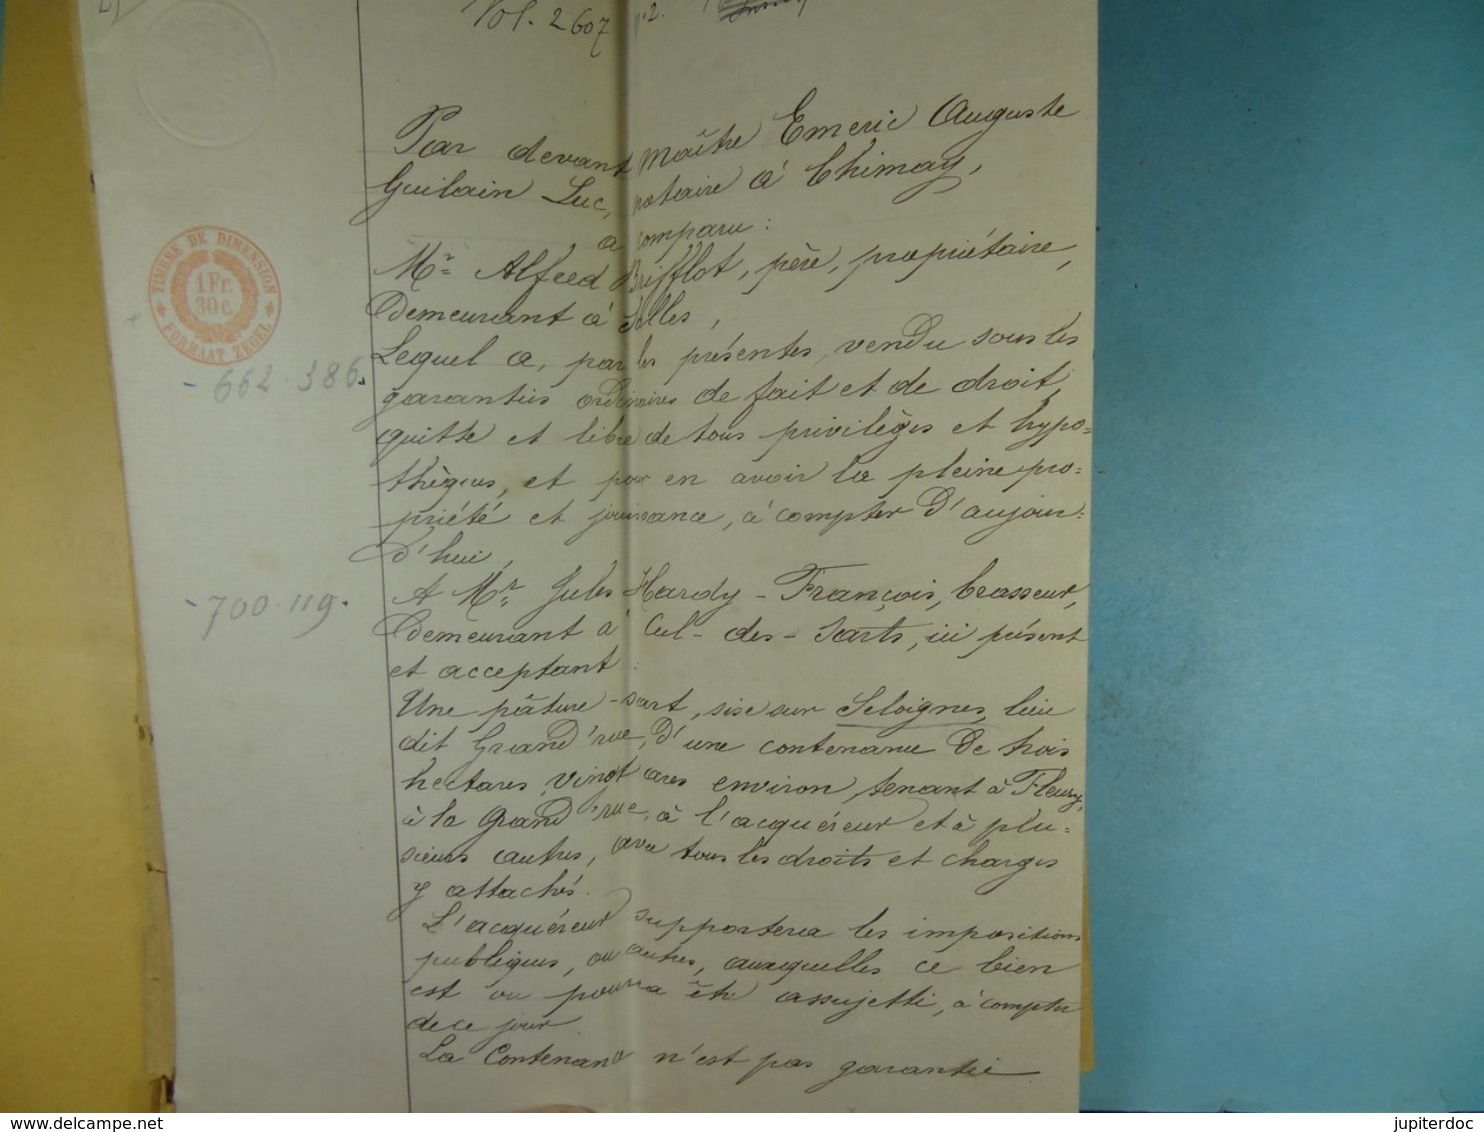 Vol. 2607 n°2.
Par devant Maître Emeric Auguste
Guilain Luc, notaire à Chimay,
a comparu :
Mr Alfred Brifflot, père, propriétaire,
Demeurant à Salles,
Lequel a, par les présentes, vendu sous les
garanties ordinaires de fait et de droit,
quitte et libre de tous privilèges et hypo=
thèques, et pour en avoir la pleine pro=
priété et jouissance, à compter d'aujour=
d'hui,
A Mr Jules Hardy-François, brasseur,
Demeurant à Cul-des-Sarts, ici présent
et acceptant :
Une pâture-sart, sise sur Seloignes, lieu
dit Grand'rue, d'une contenance de trois
hectares, vingt ares environ, tenant à Fleury,
à la Grand'rue, à l'acquéreur et à plu=
sieurs autres, avec tous les droits et charges
y attachés.
L'acquéreur supportera les impositions
publiques, ou autres, auxquelles ce bien
est ou pourra être assujetti, à compter
de ce jour.
La Contenance n'est pas garantie
TIMBRE DE DIMENSION
1 Fr.
30 c.
FORMAAT ZEGEL
- 662.386.
- 700.119.
www.delcampe.net
jupiterdoc